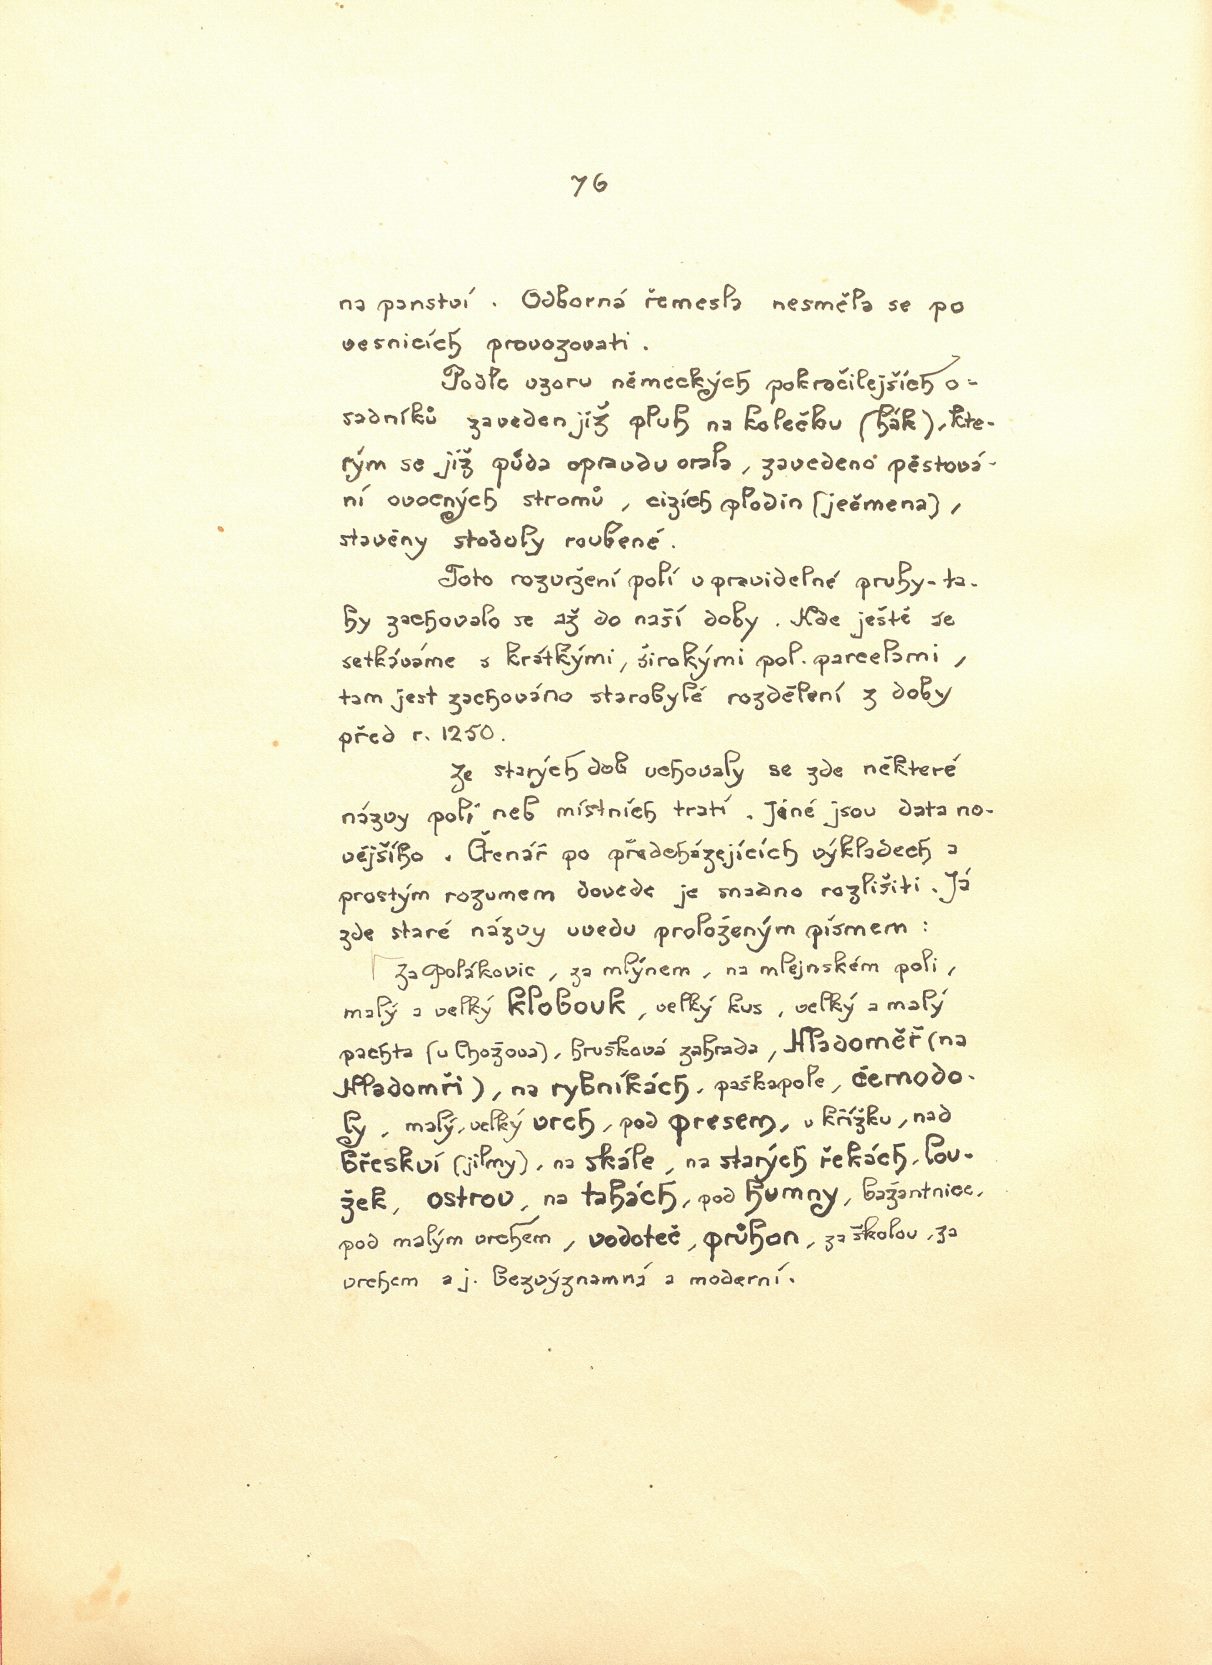 76
na panství . Odborná řemesla nesměla se po
vesnicích provozovati .
Podle vzoru německých pokročilejších o-
sadníků zaveden již pluh na kolečku (hák), kte-
rým se již půda opravdu orala , zavedeno pěstová-
ní ovocných stromů , cizích plodin (ječmena) ,
stavěny stodoly roubené .
Toto rozvržení polí v pravidelné pruhy - ta-
hy zachovalo se až do naší doby . Kde ještě se
setkáváme s krátkými , širokými pol. parcelami ,
tam jest zachováno starobylé rozdělení z doby
před r. 1250 .
Ze starých dob uchovaly se zde některé
názvy polí neb místních tratí . Jiné jsou data no-
vějšího . Čtenář po předcházejících výkladech a
prostým rozumem dovede je snadno rozlišiti . Já
zde staré názvy uvedu proloženým písmem :
Za Polákovic , za mlýnem , na mlejnském poli ,
malý a velký klobouk , velký kus , velký a malý
pachta (u Chožova) , hrušková zahrada , Hladoměř (na
Hladomři) , na rybníkách , paškapole , černodo-
ly , malý , velký vrch , pod presem , u křížku , nad
břeskví (jilmy) , na skále , na starých řekách , lou-
žek , ostrov , na tahách , pod humny , bažantnice ,
pod malým vrchem , vodoteč , průhon , za školou , za
vrchem a j. bezvýznamná a moderní .